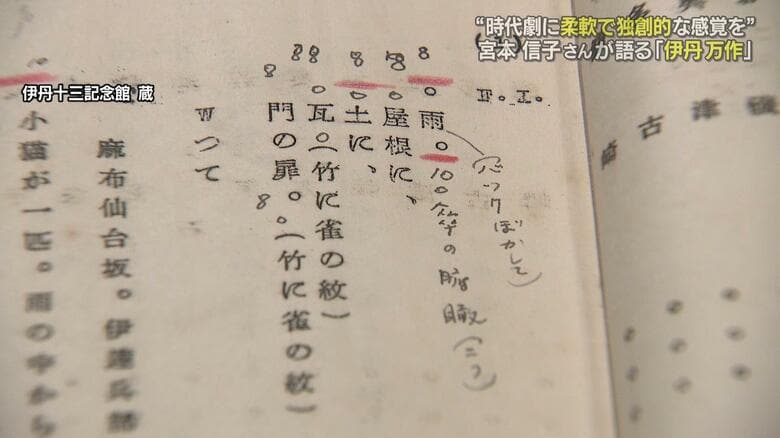 "時代劇に柔軟で独創的な感覚を"
宮本 信子さんが語る「伊丹 万作」
伊丹十三記念館 蔵
F.I.
雨。
(バックぼかして)
屋根に、
土に、
瓦。(竹に雀の紋)
門の扉。(竹に雀の紋)
Wつて
麻布仙台坂。伊達兵部
小猫が一匹。雨の中から